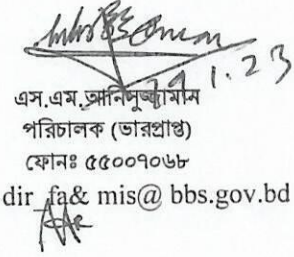 29.1.23
এস.এম. আনিসুজ্জামান
পরিচালক (ভারপ্রাপ্ত)
ফোনঃ ৫৫০০৭০৬৮
dir_fa& mis@ bbs.gov.bd